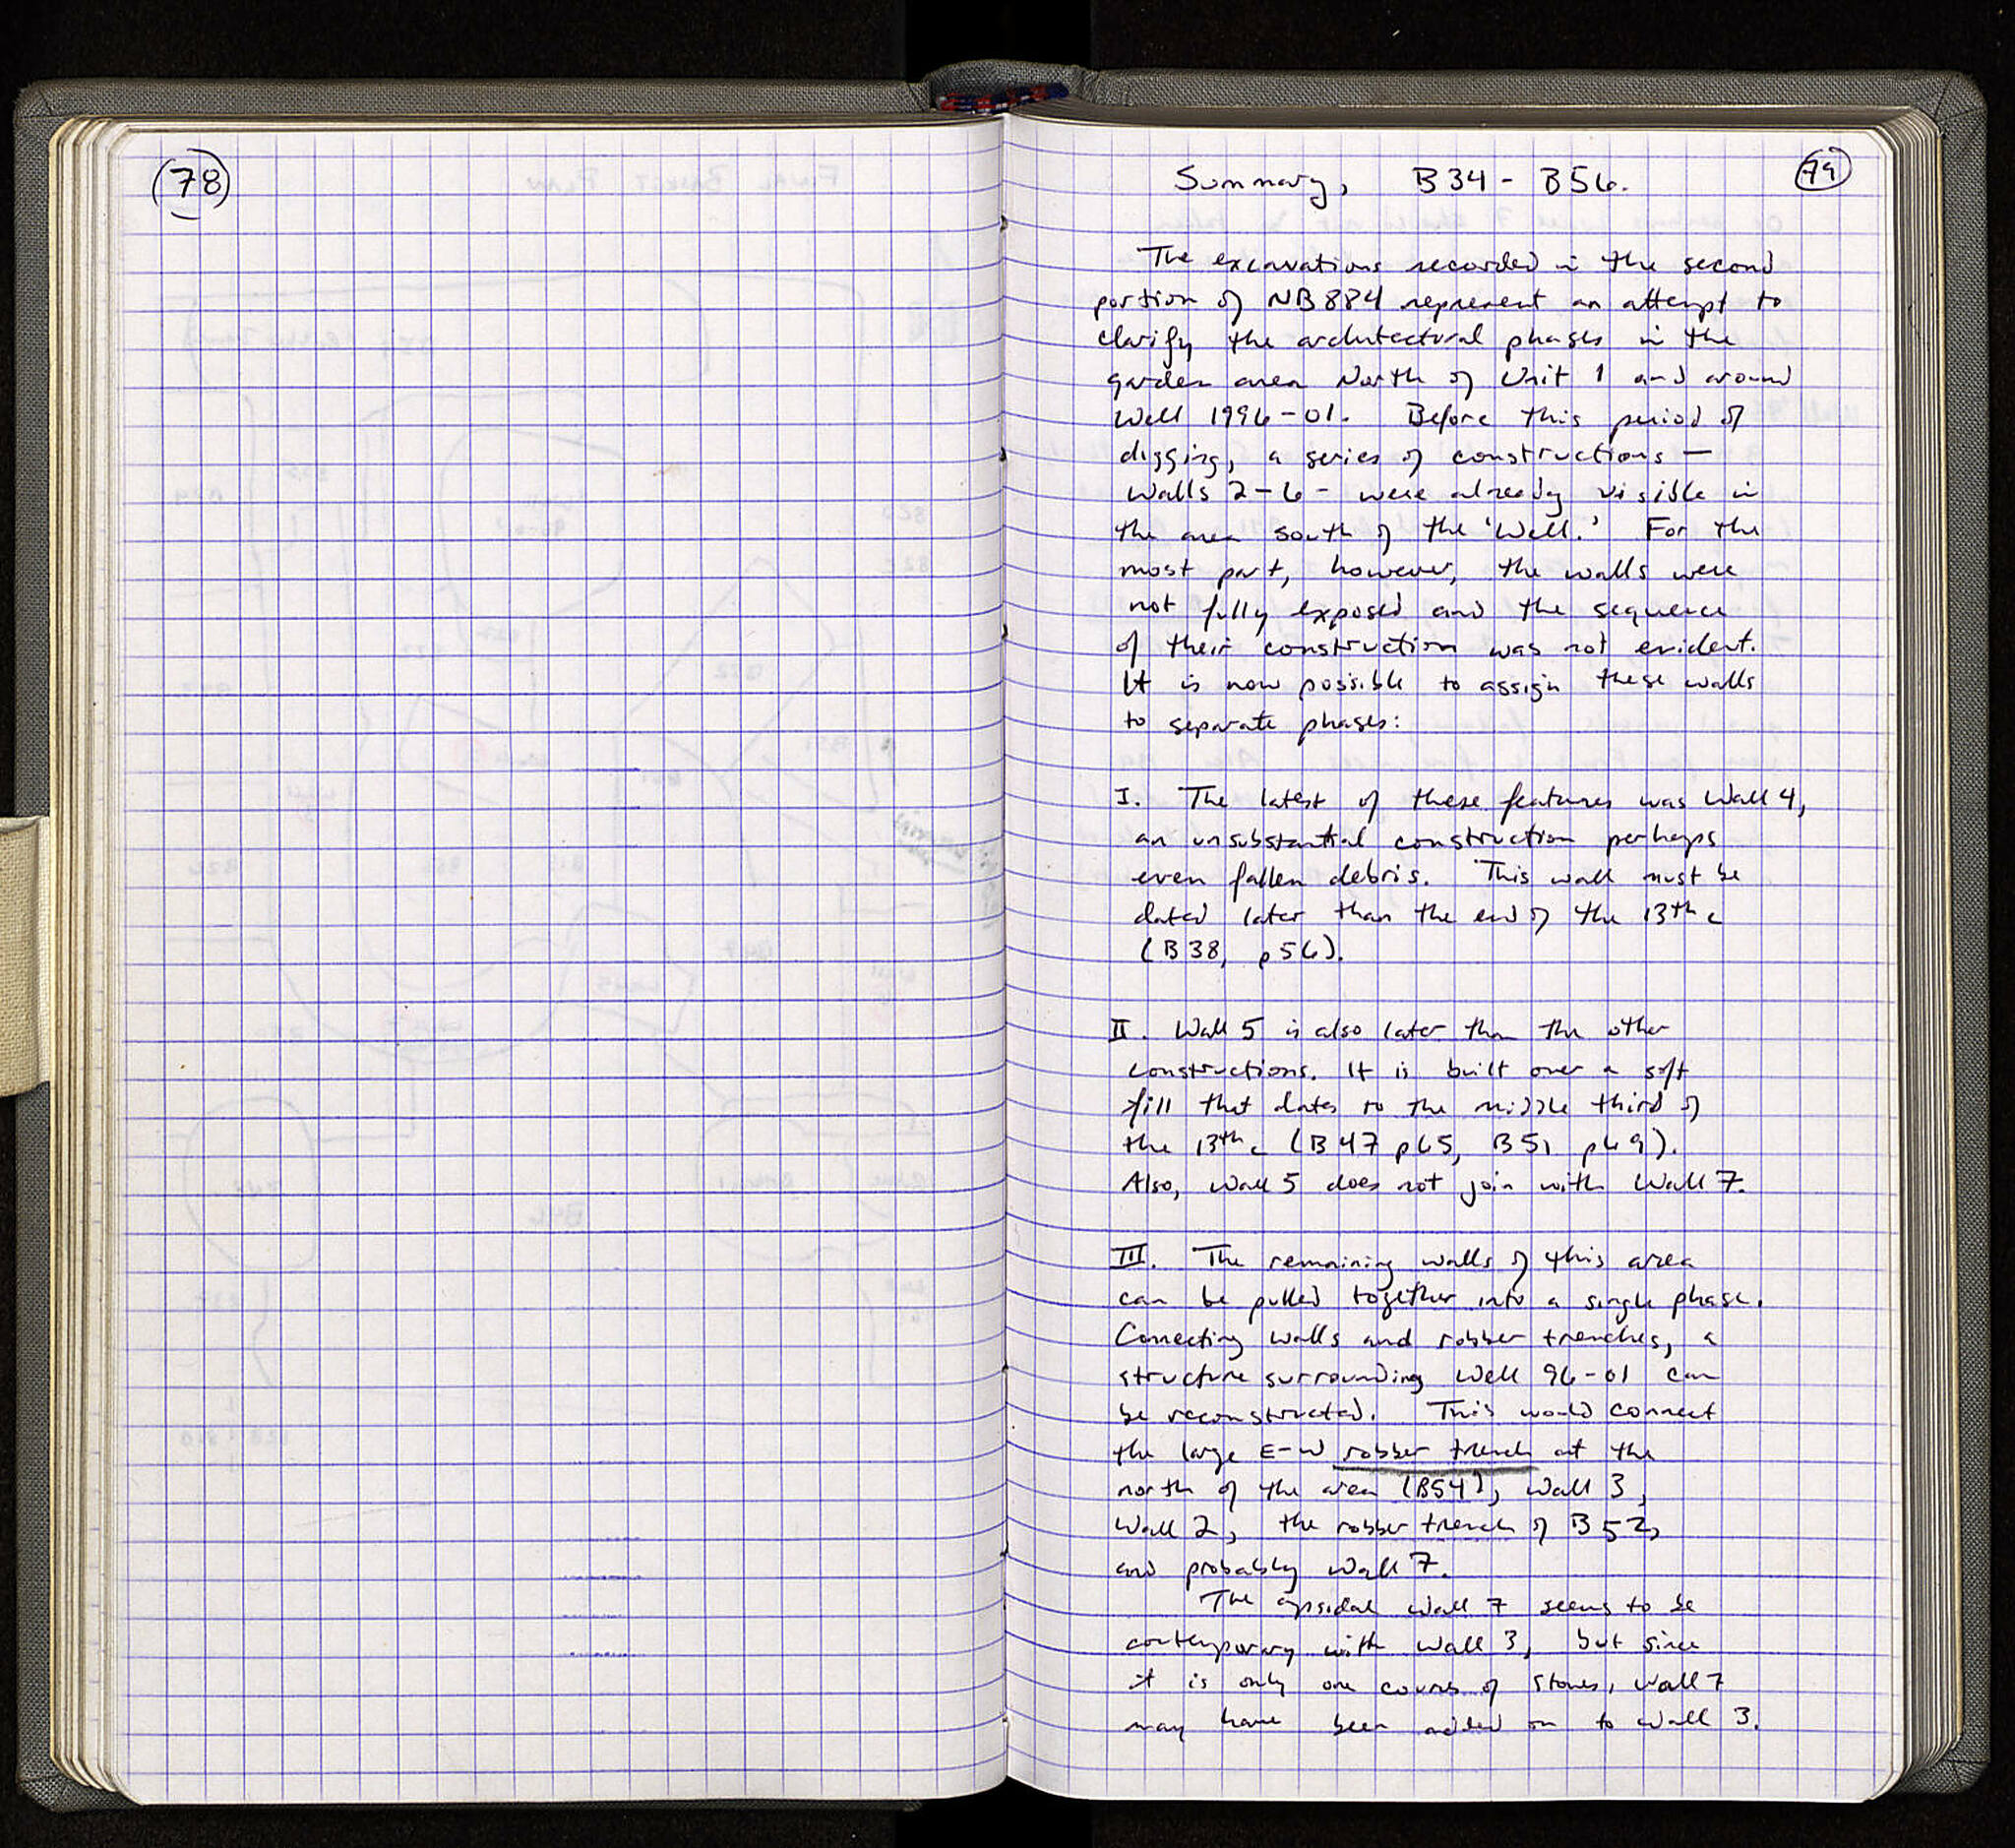 78
79
Summary, B34 - B56.
The excavations recorded in the second
portion of NB884 represent an attempt to
clarify the architectural phases in the
garden area North of Unit 1 and around
Well 1996-01. Before this period of
digging, a series of constructions —
Walls 2-6 - were already visible in
the area south of the 'Well.' For the
most part, however, the walls were
not fully exposed and the sequence
of their construction was not evident.
It is now possible to assign these walls
to separate phases:
I. The latest of these features was Wall 4,
an unsubstantial construction perhaps
even fallen debris. This wall must be
dated later than the end of the 13th c
(B38, p56).
II. Wall 5 is also later than the other
constructions. It is built over a soft
fill that dates to the middle third of
the 13th c (B47 p65, B51 p69).
Also, Wall 5 does not join with Wall 7.
III. The remaining walls of this area
can be pulled together into a single phase.
Connecting walls and robber trenches, a
structure surrounding Well 96-01 can
be reconstructed. This would connect
the large E-W robber trench at the
north of the area (B54), Wall 3,
Wall 2, the robber trench of B52,
and probably Wall 7.
The apsidal Wall 7 seems to be
contemporary with Wall 3, but since
it is only one course of stones, Wall 7
may have been added on to Wall 3.